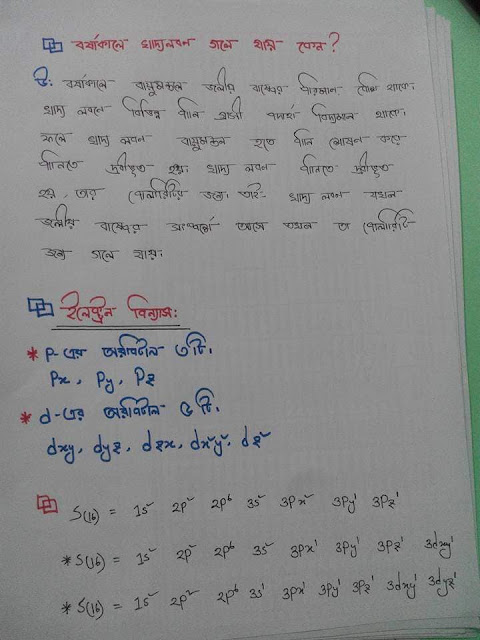 বর্ষাকালে খাদ্যলবন গলে যায় কেন?
উ: বর্ষাকালে বায়ুমন্ডলে জলীয় বাষ্পের পরিমান বেশি থাকে।
খাদ্য লবনে বিভিন্ন পানি গ্রাসী পদার্থ বিদ্যমান থাকে।
ফলে খাদ্য লবন বায়ুমন্ডল হতে পানি শোষন করে
পানিতে দ্রবীভূত হয়। খাদ্য লবন পানিতে দ্রবীভূত
হয়, তার পোলারিটির জন্যে। তাই খাদ্য লবন যখন
জলীয় বাষ্পের সংস্পর্শে আসে তখন তা পোলারিটি-
জন্য গলে যায়।
ইলেক্ট্রন বিন্যাস:
* P-এর অরবিটাল ৩টি।
Px, Py, Pz
* d-এর অরবিটাল ৫টি।
dxy, dyz, dzx, dx²y², dz²
S(16) = 1s² 2p² 2p⁶ 3s² 3px² 3py¹ 3pz¹
* S(16) = 1s² 2p² 2p⁶ 3s² 3px¹ 3py¹ 3pz¹ 3dxy¹
* S(16) = 1s² 2p² 2p⁶ 3s¹ 3px¹ 3py¹ 3pz¹ 3dxy¹ 3dyz¹